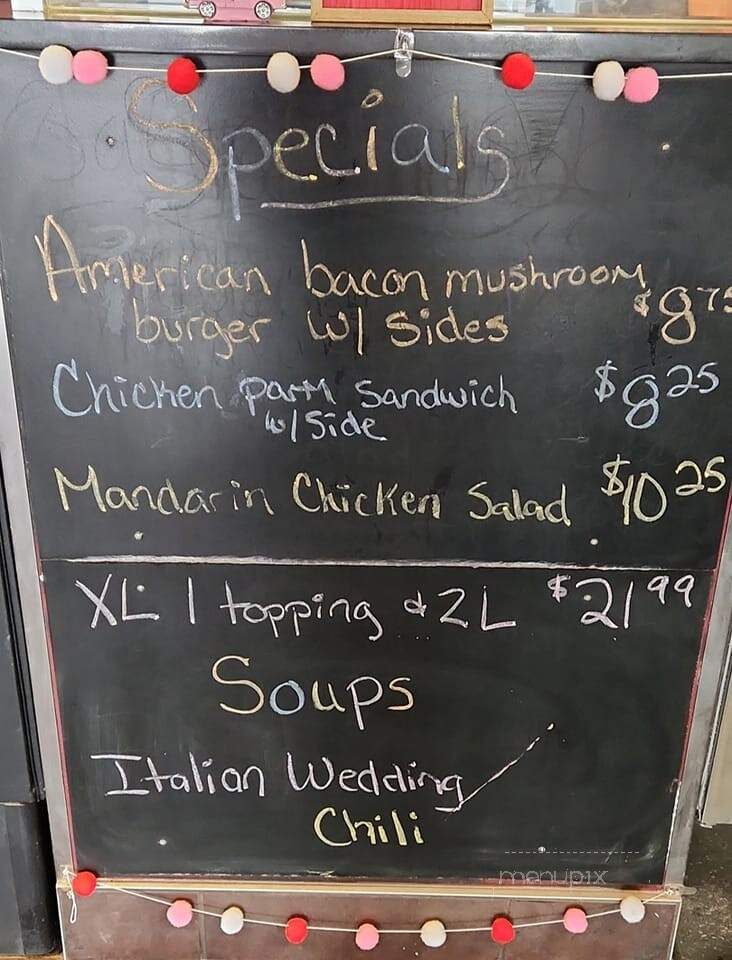 Specials
American bacon mushroom
burger w/ sides $8 75
Chicken parm sandwich $8 25
w/ Side
Mandarin Chicken Salad $10 25
XL 1 topping & 2 L $21 99
Soups
Italian Wedding
Chili
menupix